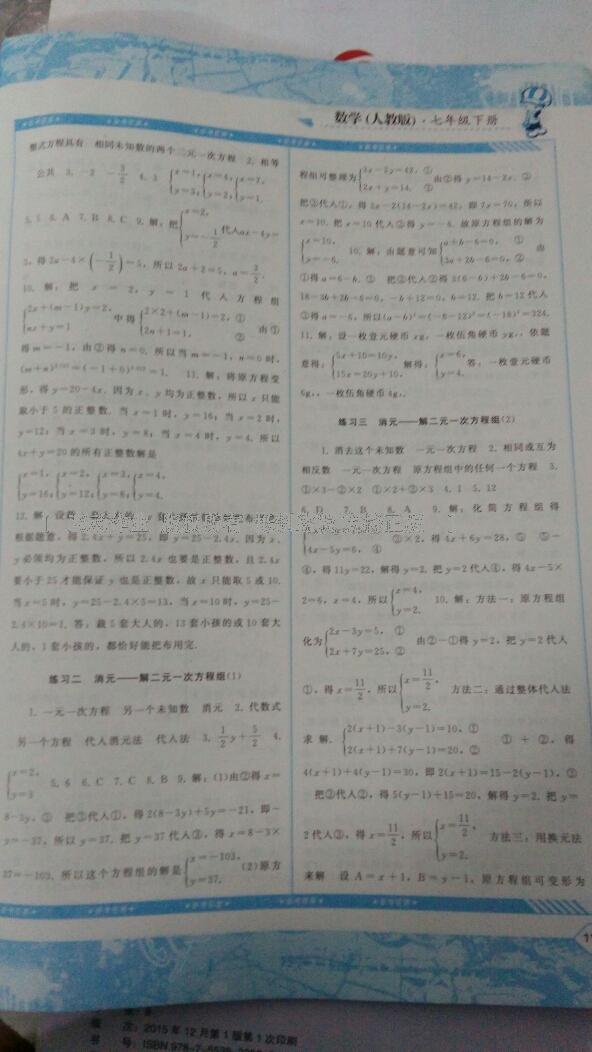 数学(人教版)·七年级下册
整式方程具有 相同未知数的两个二元一次方程 2. 相等
公共 3. -2 -3/2 4. 3 {x=1, y=3; {x=4, y=2; {x=7, y=1.
5. 5 6. A 7. B 8. C 9. 解:把{x=2, y=-1/2 代入ax-4y=
5,得2a-4×(-1/2)=5,所以2a+2=5,a=3/2.
10. 解:把 x=2, y=1 代入方程组
{2x+(m-1)y=2, nx+y=1 中得{2×2+(m-1)=2,① 2n+1=1. ② 由①
得m=-1,由②得n=0.所以当m=-1,n=0时,
=1. 11. 解:将原方程变
形,得y=20-4x.因为x、y均为正整数,所以x只能
取小于5的正整数.当x=1时,y=16;当x=2时,
y=12;当x=3时,y=8;当x=4时,y=4.所以
4x+y=20的所有正整数解是
{x=1, y=16; {x=2, y=12; {x=3, y=8; {x=4, y=4.
12. 解:设
根据题意,得2.4x+y=25,即y=25-2.4x.因为x、
y必须均为正整数,所以2.4x也要是正整数,且2.4x
要小于25才能保证y也是正整数,故x只能取5或10.
当x=5时,y=25-2.4×5=13,当x=10时,y=25-
2.4×10=1.答:裁5套大人的,13套小孩的或10套大
人的,1套小孩的,都恰好能把布用完.
练习二 消元——解二元一次方程组(1)
1. 一元一次方程 另一个未知数 消元 2. 代数式
另一个方程 代入消元法 代入法 3. 1/2y+5/2 4.
{x=2, y=3 5. 6 6. C 7. C 8. B 9. 解:(1)由②得x=
8-3y,③ 把③代入①,得2(8-3y)+5y=-21,即-
y=-37,所以y=37.把y=37代入③,得x=8-3×
37=-103.所以这个方程组的解是{x=-103, y=37. (2)原方
程组可整理为{3x-2y=42,① 2x+y=14. ② 由②得y=14-2x.③
把③代入①,得3x-2(14-2x)=42,即7x=70,所以
x=10.把x=10代入③得y=-6.故原方程组的解为
{x=10, y=-6. 10. 解:由题意可知{a+b-6=0, ① 3a+2b-6=0,② 由
①得a=6-b.③ 把③代入②得3(6-b)+2b-6=0,
18-3b+2b-6=0,-b+12=0,b=12.把b=12代入
③得a=-6,所以(a-b)²=(-6-12)²=(-18)²=324.
11. 解:设一枚壹元硬币xg,一枚伍角硬币yg,依题
意得:{5x+10=10y, 15x=20y+10. 解得:{x=6, y=4. 答:一枚壹元硬币
6g,一枚伍角硬币4g.
练习三 消元——解二元一次方程组(2)
1. 消去这个未知数 一元一次方程 2. 相同或互为
相反数 一元一次方程 原方程组中的任何一个方程 3.
①×3-②×2 ①×2+②×3 4. 1 5. 12
6. D 7. B 8. A 9. 解:化简方程组得
4x-5y=6, ④ ③×2,得4x+6y=28,⑤ ⑤-
④,得11y=22,解得y=2.把y=2代入④,得4x-5×
2=6,x=4,所以{x=4, y=2. 10. 解:方法一:原方程组
化为{2x-3y=5, ① 2x+7y=25,② 由②-①得y=2,把y=2代入
①,得x=11/2,所以{x=11/2, y=2. 方法二:通过整体代入法
求解.{2(x+1)-3(y-1)=10,① 2(x+1)+7(y-1)=20,② ①+②,得
4(x+1)+4(y-1)=30,即2(x+1)=15-2(y-1),③
把③代入②,得5(y-1)+15=20,解得y=2.把y=
2代入③,得x=11/2,所以{x=11/2, y=2. 方法三:用换元法
来解 设A=x+1,B=y-1,原方程组可变形为
次:2015年12月第1版第1次印刷
号:ISBN 978-7-5538-